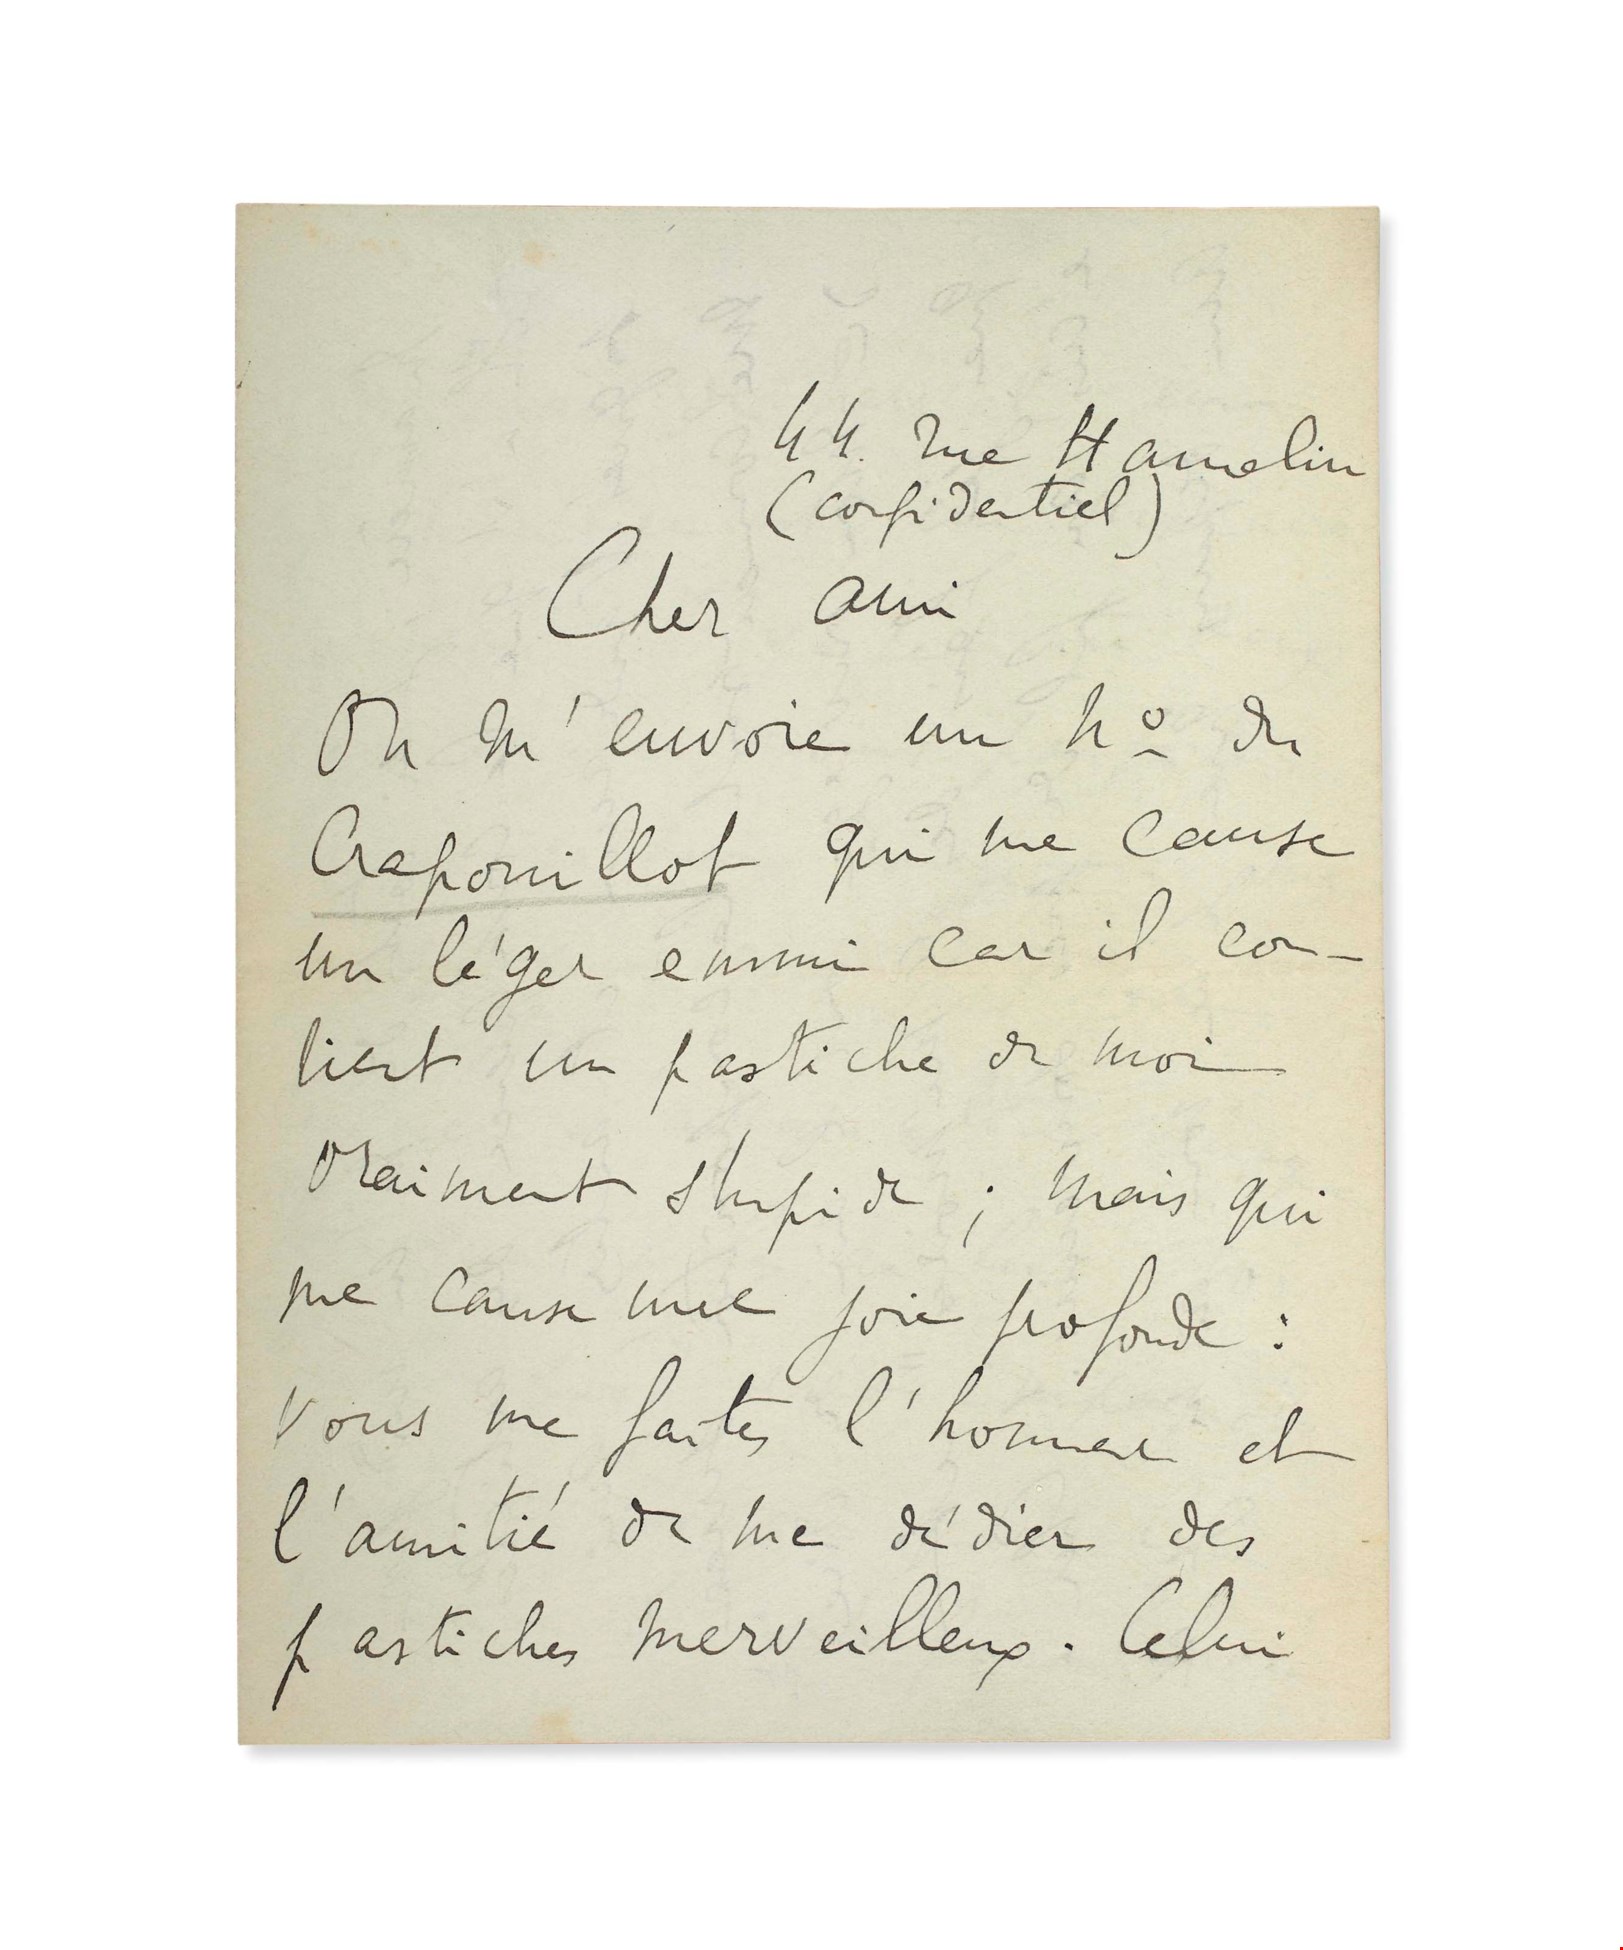 44 rue Hamelin
(confidentiel)
Cher ami
On m'envoie un nº du
Crapouillot qui me cause
un léger ennui car il con-
tient un pastiche de moi
vraiment stupide ; mais qui
me cause une joie profonde :
vous me faites l'honneur et
l'amitié de me dédier des
pastiches merveilleux. Celui